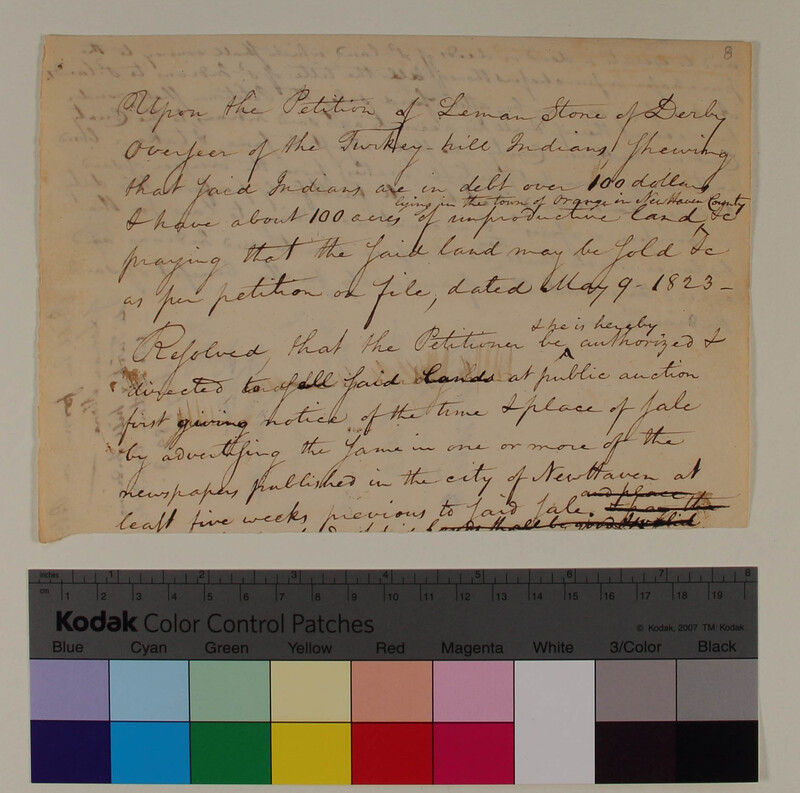 8
Upon the Petition of Leman Stone of Derby
Overseer of the Turkey-hill Indians, Shewing
that said Indians are in debt over 100 dollars
lying in the town of Orange in New Haven County
& have about 100 acres of unproductive land, &c
praying that the said land may be sold &c
as per petition on file, dated May 9 - 1823 -
& he is hereby
Resolved, that the Petitioner be authorized &
directed to sell said lands at public auction
first giving notice of the time & place of sale
by advertising the same in one or more of the
newspapers published in the city of New Haven at
and place
least five weeks previous to said sale.
lands shall be good & valid
inches 1 2 3 4 5 6 7 8
cm 1 2 3 4 5 6 7 8 9 10 11 12 13 14 15 16 17 18 19
Kodak Color Control Patches © Kodak, 2007 TM: Kodak
Blue Cyan Green Yellow Red Magenta White 3/Color Black